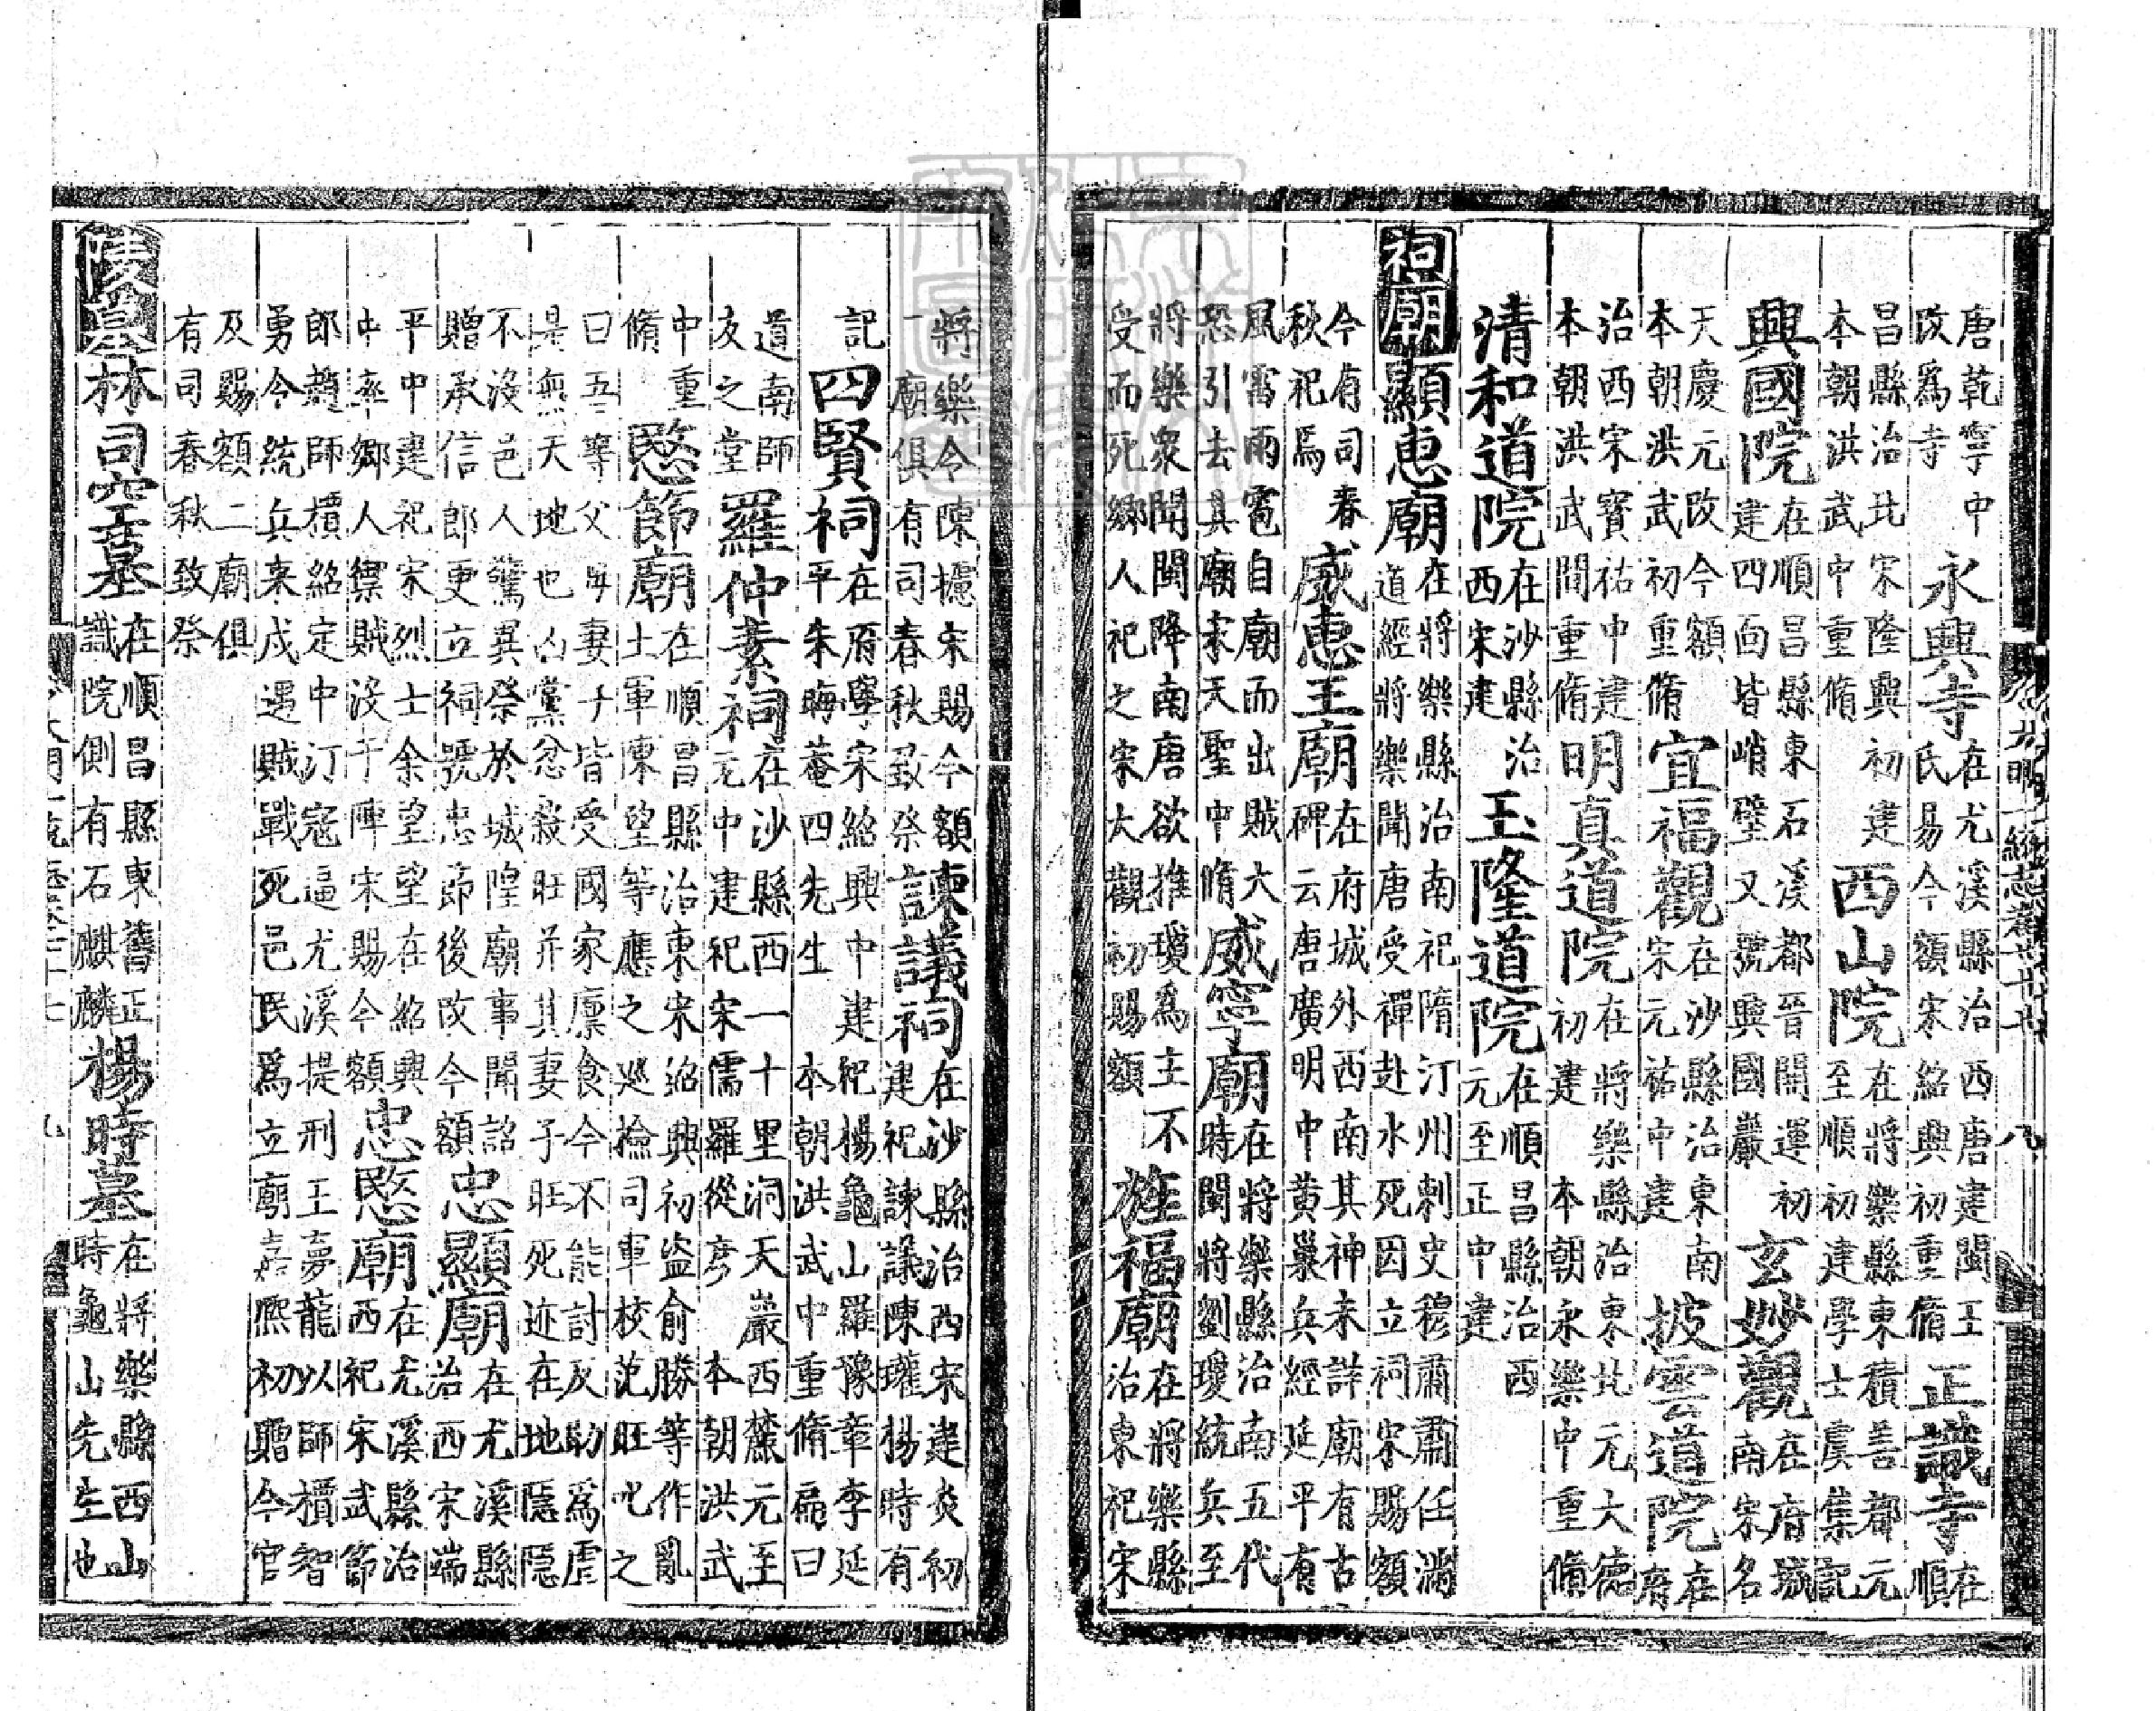 唐乾寧中
改為寺
永興寺
在尤溪縣治西唐建閩王
氏易今額宋紹興初重脩
正識寺
在
順
昌縣治北宋隆興初建
本朝洪武中重脩
西山院
在將樂縣東積善都元
至順初建學士虞集記
興國院
在順昌縣東石溪都晉開運初
建四面皆峭壁又號興國巖
玄妙觀
在府城
南宋名
天慶元改今額
本朝洪武初重脩
宜福觀
在沙縣治東南
宋元祐中建
披雲道院
在
府
治西宋寶祐中建
本朝洪武間重脩
明真道院
在將樂縣治東北元大德
初建 本朝永樂中重脩
清和道院
在沙縣治
西宋建
玉隆道院
在順昌縣治西
元至正中建
祠廟
顯惠廟
在將樂縣治南祀隋汀州刺史穆肅肅任滿
道經將樂聞唐受禪赴水死因立祠宋賜額
今有司春
秋祀焉
威惠王廟
在府城外西南其神未詳廟有古
碑云唐廣明中黃巢兵經延平有
風雷雨雹自廟而出賊大
恐引去其廟宋天聖中脩
威寧廟
在將樂縣治南五代
時閩將劉瓊統兵至
將樂眾聞閩降南唐欲推瓊為主不
受而死鄉人祀之宋大觀初賜額
旌福廟
在將樂縣
治東祀宋
將樂令陳攄宋賜今額
一廟俱有司春秋致祭
諫議祠
在沙縣治西宋建炎初
建祀諫議陳瓘楊時有
記
四賢祠
在府學宋紹興中建祀楊龜山羅豫章李延
平朱晦菴四先生 本朝洪武中重脩扁曰
道南師
友之堂
羅仲素祠
在沙縣西一十里洞天巖西麓元至
元中建祀宋儒羅從彥 本朝洪武
中重
脩
愍節廟
在順昌縣治東宋紹興初盜俞勝等作亂
土軍陳望等應之巡撿司軍校范旺叱之
曰五等父母妻子皆受國家廩食今不能討反助為虐
是無天地也凶黨忿殺旺并其妻子旺死迹在地隱隱
不沒邑人驚異祭於城隍廟事聞詔
贈承信郎更立祠號忠節後改今額
忠顯廟
在尤溪縣
治西宋端
平中建祀宋烈士余望望在紹興
中率鄉人禦賊沒于陣宋賜今額
忠愍廟
在尤溪縣治
西祀宋武節
郎趙師檟紹定中汀寇逼尤溪提刑王夢龍以師檟智
勇今統兵來戍遇賊戰死邑民為立廟嘉熙初贈今官
及賜額二廟俱
有司春秋致祭
陵墓
林司空墓
在順昌縣東舊正
識院側有石麒麟
楊時墓
在將樂縣西山
時龜山先生也